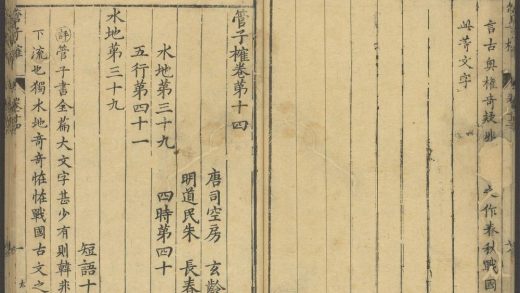 言古奧權奇疑非 作春秋戰國
此等文字
管子榷卷第十四
唐司空房 玄齡
明道民朱 長春
水地第三十九 四時第四十
五行第四十一
水地第三十九
短語十
評管子書全篇大文字甚少有則韓非
下流也獨水地奇奇恠恠戰國古文之
管子榷 卷十四 一